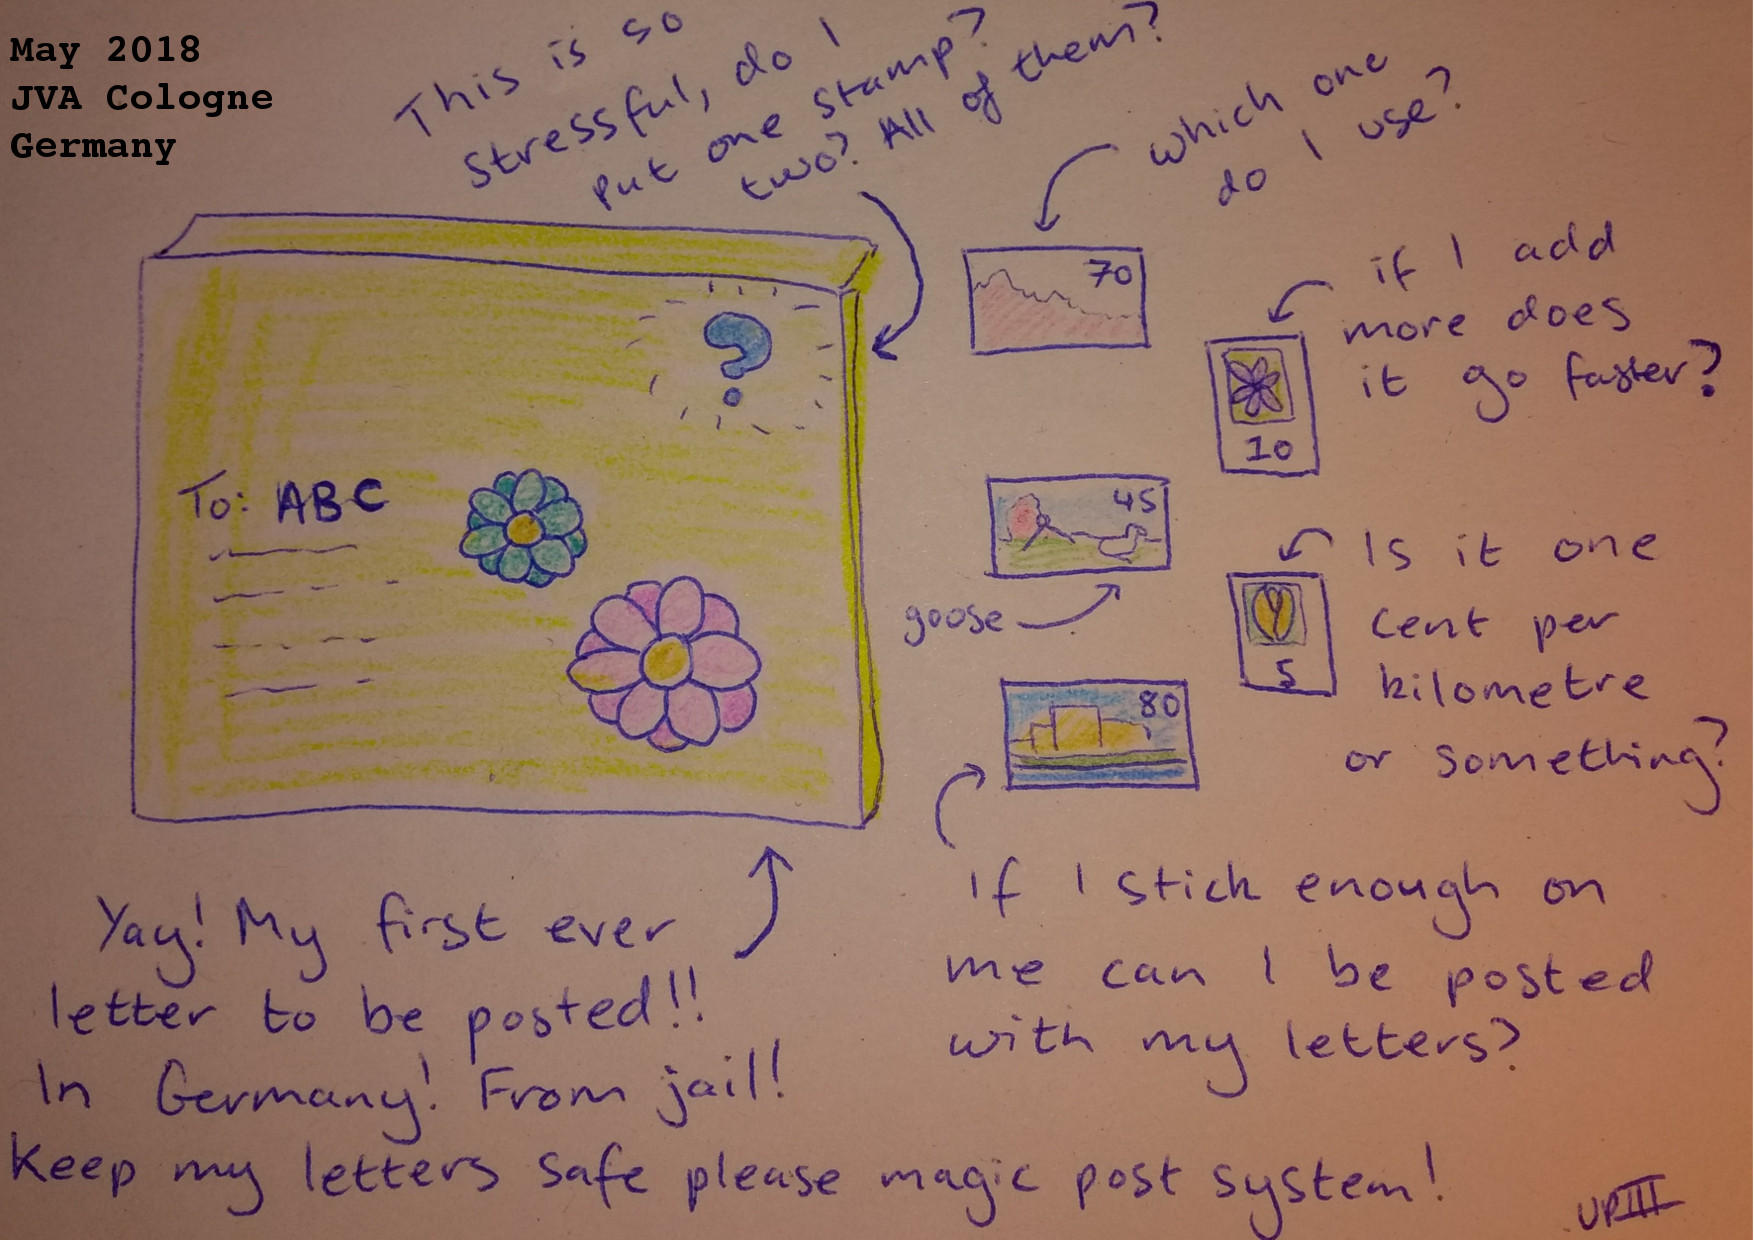 May 2018
JVA Cologne
Germany
This is so
stressful, do I
put one stamp?
two? All of them?
which one
do I use?
70
if I add
more does
it go faster?
10
?
To: ABC
45
goose
Is it one
cent per
kilometre
or something?
5
80
Yay! My first ever
letter to be posted!!
In Germany! From jail!
Keep my letters safe please magic post system!
If I stick enough on
me can I be posted
with my letters?
UPIII